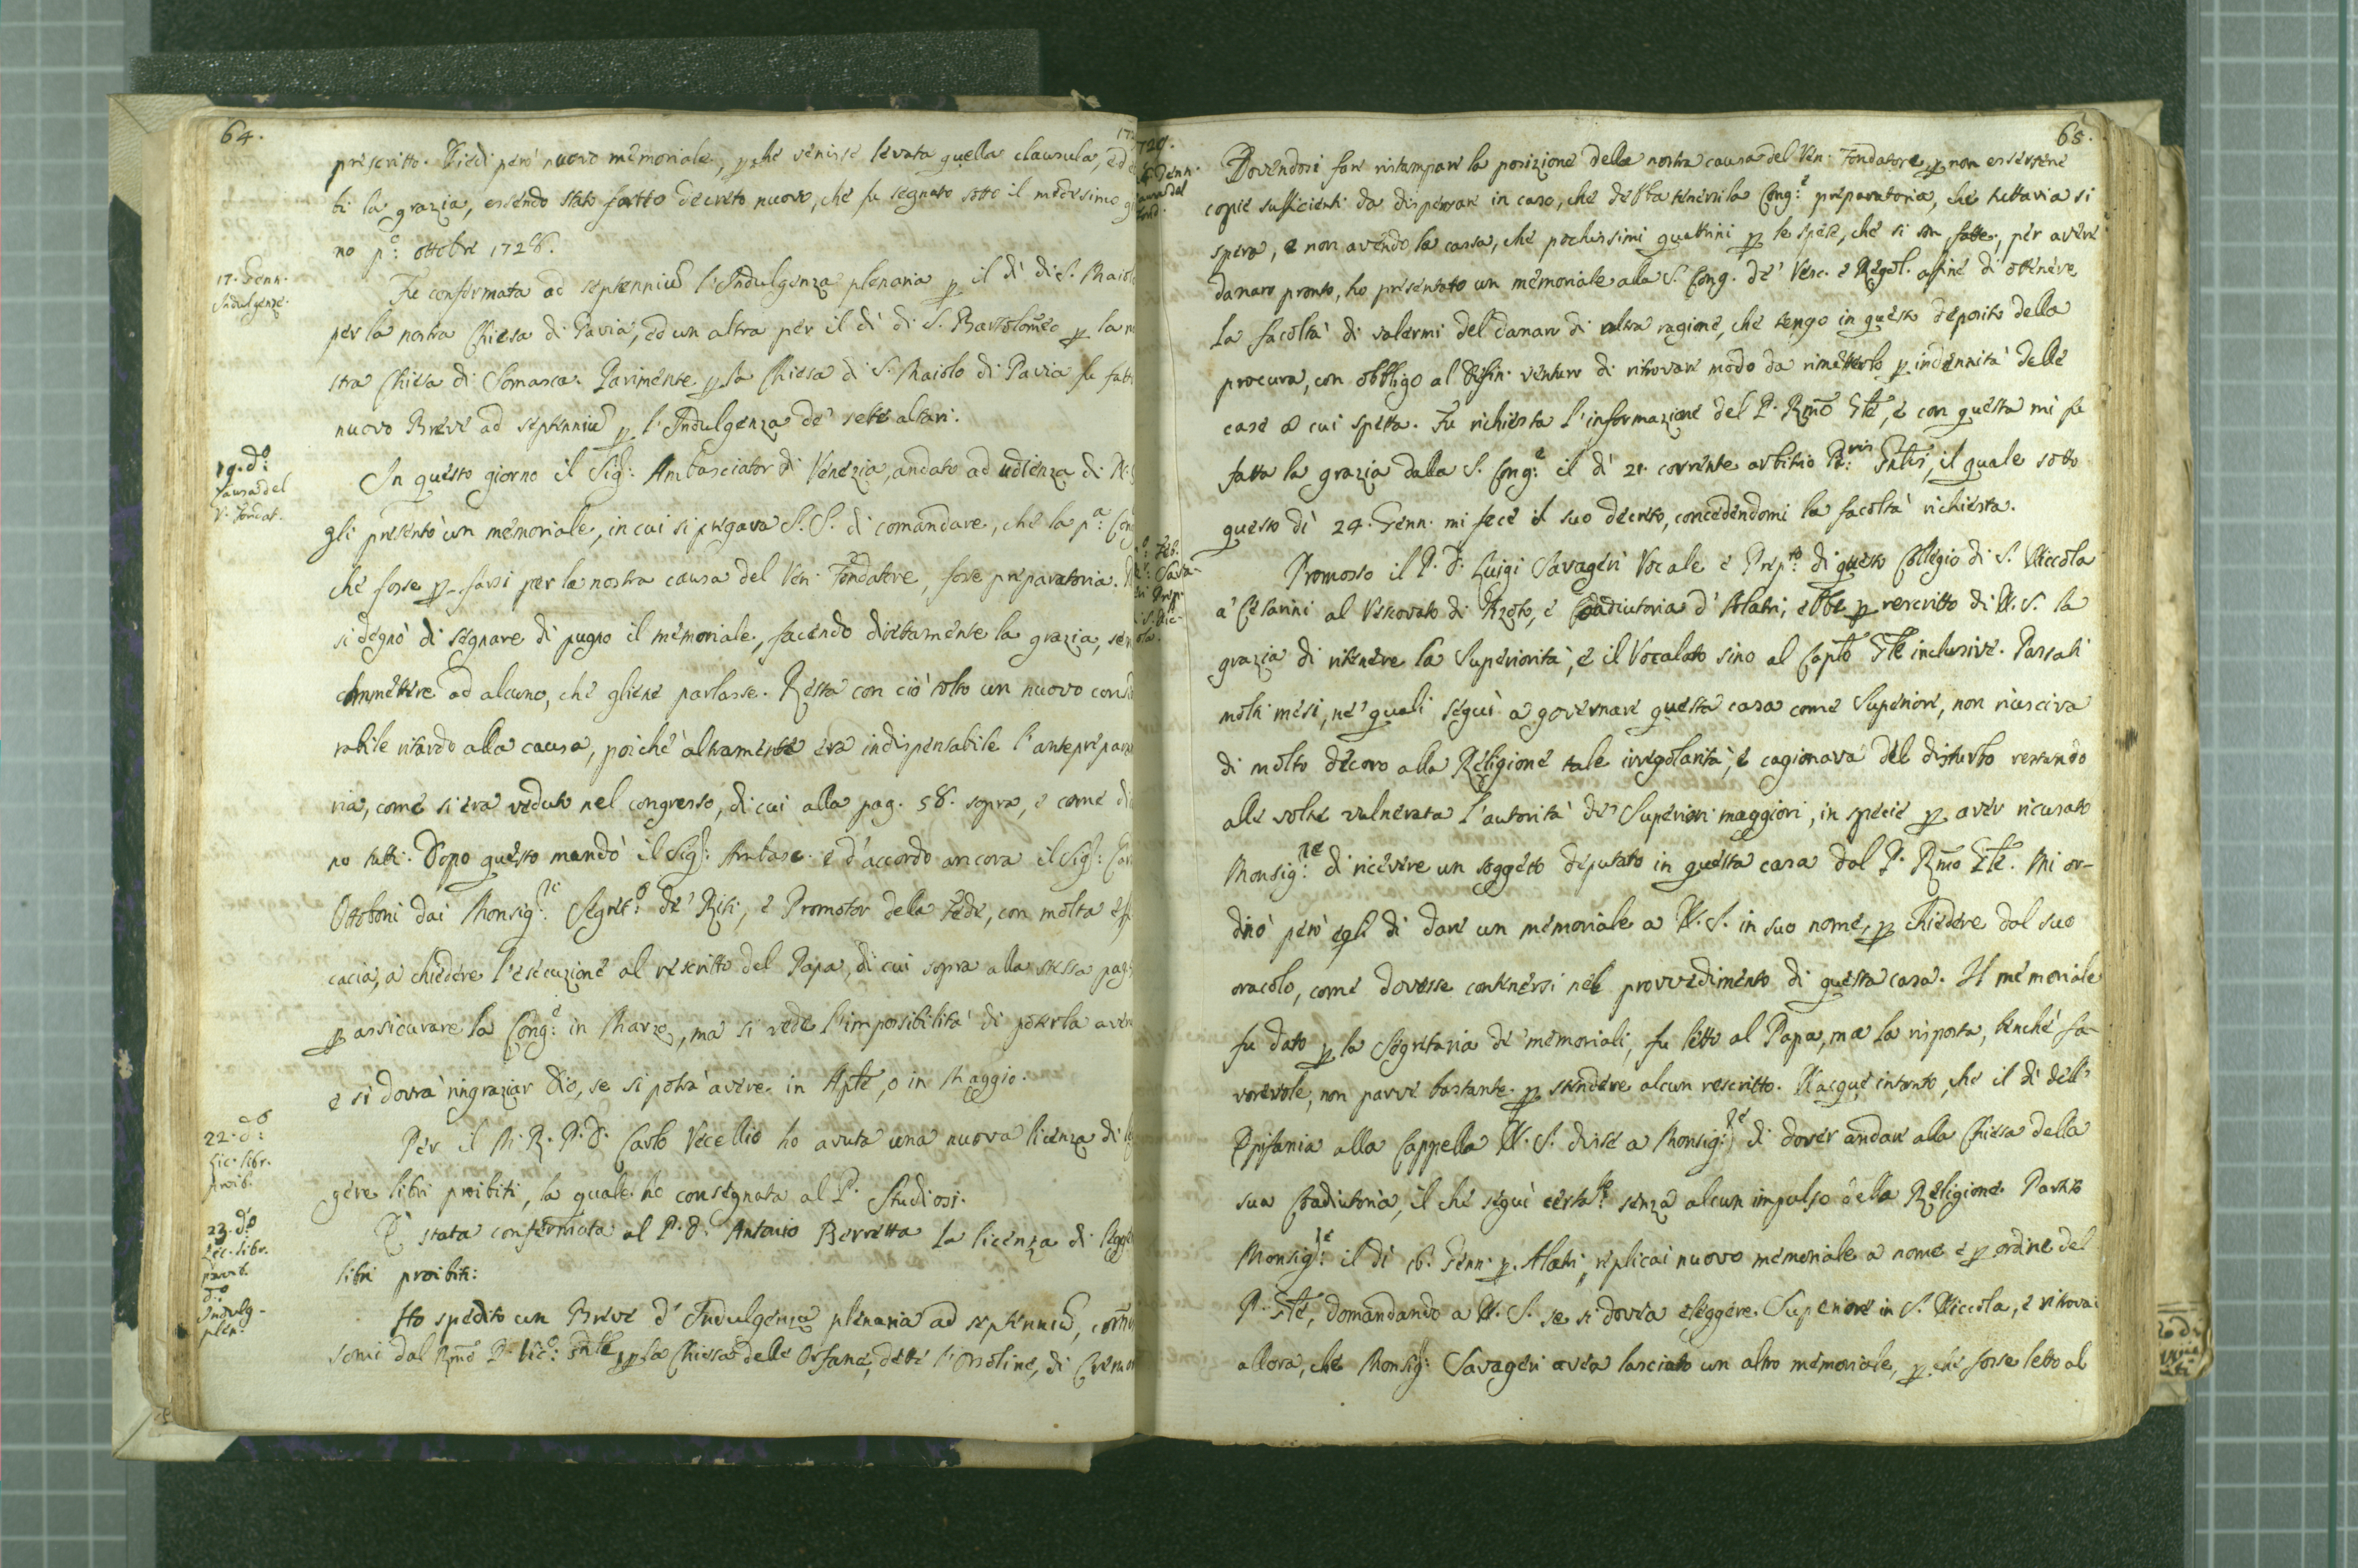 64.
prescritto. Diedi però nuovo memoriale, p che venisse levata quella clausula, ed
bi la grazia, essendo stato fatto decreto nuovo, che fu segnato sotto il medesimo
no p.o ottobre 1728.
17. Genn.
Indulgenze.
Fu confermata ad septenniu l'Indulgenza plenaria p il dì di S. Maiolo
per la nostra Chiesa di Pavia, ed un altra per il dì di S. Bartolomeo p la
stra Chiesa di Somasca. Parimente p la Chiesa di S. Maiolo di Pavia fu fatto
nuovo Breve ad septenniu p l'Indulgenza de' sette altari.
19. d.o
Causa del
V. Fondat.
In questo giorno il Sig.r Ambasciator di Venezia, andato ad udienza di N.
gli presentò un memoriale, in cui si pregava S. S. di comandare, che la p.a Cong
che fosse p farsi per la nostra causa del Ven. Fondatore, fosse preparatoria.
si degnò di segnare di pugno il memoriale, facendo direttamente la grazia, sen
commettere ad alcuno, che gliene parlasse. Resta con ciò tolto un nuovo con
rabile ritardo alla causa, poiché altramente era indispensabile l'antiprepara
ria, come si era veduto nel congresso, di cui alla pag. 58. sopra, e come di
no tutti. Dopo questo mandò il Sig.r Ambasc. e d'accordo ancora il Sig.r Car
Ottoboni dai Monsig.ri Segret.o de' Riti, e Promotor dela Fede, con molta eff
cacia, a chiedere l'esecuzione al rescritto del Papa, di cui sopra alla stessa pag.
p assicurare la Cong.e in Marzo, ma si vede l'impossibilità di poterla aver
e si dovrà ringraziar Dio, se si potrà avere in Aple, o in Maggio.
22. d.o
Lic. libr.
proib.
Per il M. R. P. D. Carlo Vecellio ho avuta una nuova licenza di le
gere libri proibiti, la quale ho consegnata al P. Studiosi.
23. d.o
Lic. libr.
proib.
È stata confermata al P. D. Antonio Berretta la licenza di legge
libri proibiti:
d.o
Indulg.
plen.
Ho spedito un Breve d'Indulgenza plenaria ad septenniu,
somi dal Rmo P. Vic.o Gnle, p la Chiesa delle Orfane, dette l'Orsoline, di Cremo
65.
Genn.
Causa del
Fond.
Dovendosi far ristampare la posizione della nostra causa del Ven. Fondatore, p non esservene
copie sufficienti da dispensare in caso, che debba tenersi la Cong.e preparatoria, che tuttavia si
spera, e non avendo la cassa, che pochissimi quattrini p le spese, che si son fatte, per avere
danaro pronto, ho presentato un memoriale alla S. Cong. de' Vesc. e Regol. affine di ottenere
la facoltà di valermi del danaro di altra ragione, che tengo in questo deposito della
procura, con obbligo al Diffin. venturo di ritrovare modo da rimetterlo p indennità delle
case a cui spetta. Fu richiesta l'informazione del P. Rmo Gle, e con questa mi fu
fatta la grazia dalla S. Cong.e il dì 21. corrente arbitrio P.ris Gnlis, il quale sotto
questo dì 24. Genn. mi fece il suo decreto, concedendomi la facoltà richiesta.
Feb.
Promosso il P. D. Luigi Savageri Vocale e Prep.to di questo Collegio di S. Niccola
a' Cesarini al Vescovato di Azoto, e Coadiutoria d'Alatri, ebbe p rescritto di N. S. la
grazia di ritenere la Superiorità, e il Vocalato sino al Caplo Gle inclusive. Passati
molti mesi, ne' quali seguì a governare questa casa come Superiore, non riusciva
di molto decoro alla Religione tale irregolarità, e cagionava del disturbo restando
alle volte vulnerata l'autorità de' Superiori maggiori, in specie p aver ricusato
Monsig.re di ricevere un soggetto deputato in questa casa dal P. Rmo Gle. Mi or-
dinò però egli di dare un memoriale a N. S. in suo nome, p chiedere dal suo
oracolo, come dovesse contenersi nel provvedimento di questa casa. Il memoriale
fu dato p la Segretaria de' memoriali, fu letto al Papa, ma la risposta, benché fa-
vorevole, non parve bastante p stendere alcun rescritto. Nacque intanto, che il dì dell'
Epifania alla Cappella N. S. disse a Monsig.re di dover andare alla Chiesa della
sua Coadiutoria, il che seguì certa.te senza alcun impulso della Religione. Partito
Monsig.re il dì 18. Genn. p Alatri, replicai nuovo memoriale a nome e p ordine del
P. Gle, domandando a N. S. se si dovea eleggere Superiore in S. Niccola, e ritrovai
allora, che Monsig.r Savageri avea lasciato un altro memoriale, p che fosse letto al